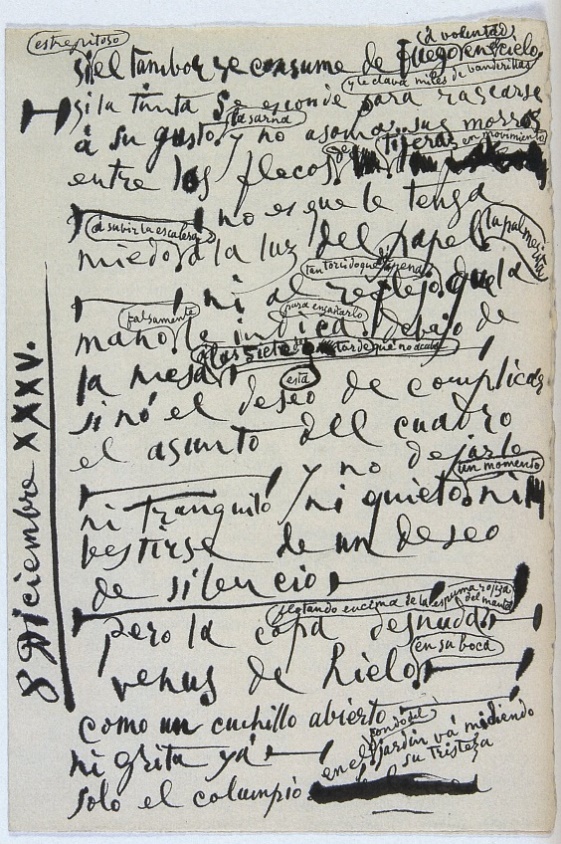 estrepitoso
(á voluntad)
si el tambor se consume de fuego en cielo
y le clava miles de banderillas
si la tinta se esconde para rascarse
la sarna
á su gusto y no asomar sus morros
de tijeras en movimiento
entre los flecos
no es que le tenga
á subir la escalera
la palmerita
miedo á la luz del papel
tan torcido que
ni al reflejo que la
falsamente
para engañarlo
mano le indica debajo de
á las siete de tarde que no acaba
la mesa
está
si nó el deseo de complicar
el asunto del cuadro
y no dejarlo
un momento
ni tranquilo ni quieto ni
bestirse de un deseo
de silencio
flotando encima de la espuma roja
del manto
pero la copa desnuda
en su boca
venus de hielo
como un cuchillo abierto
fondo del
ni grita ya
en el jardin vá midiendo
su tristeza
solo el columpio
8 Diciembre XXXV.